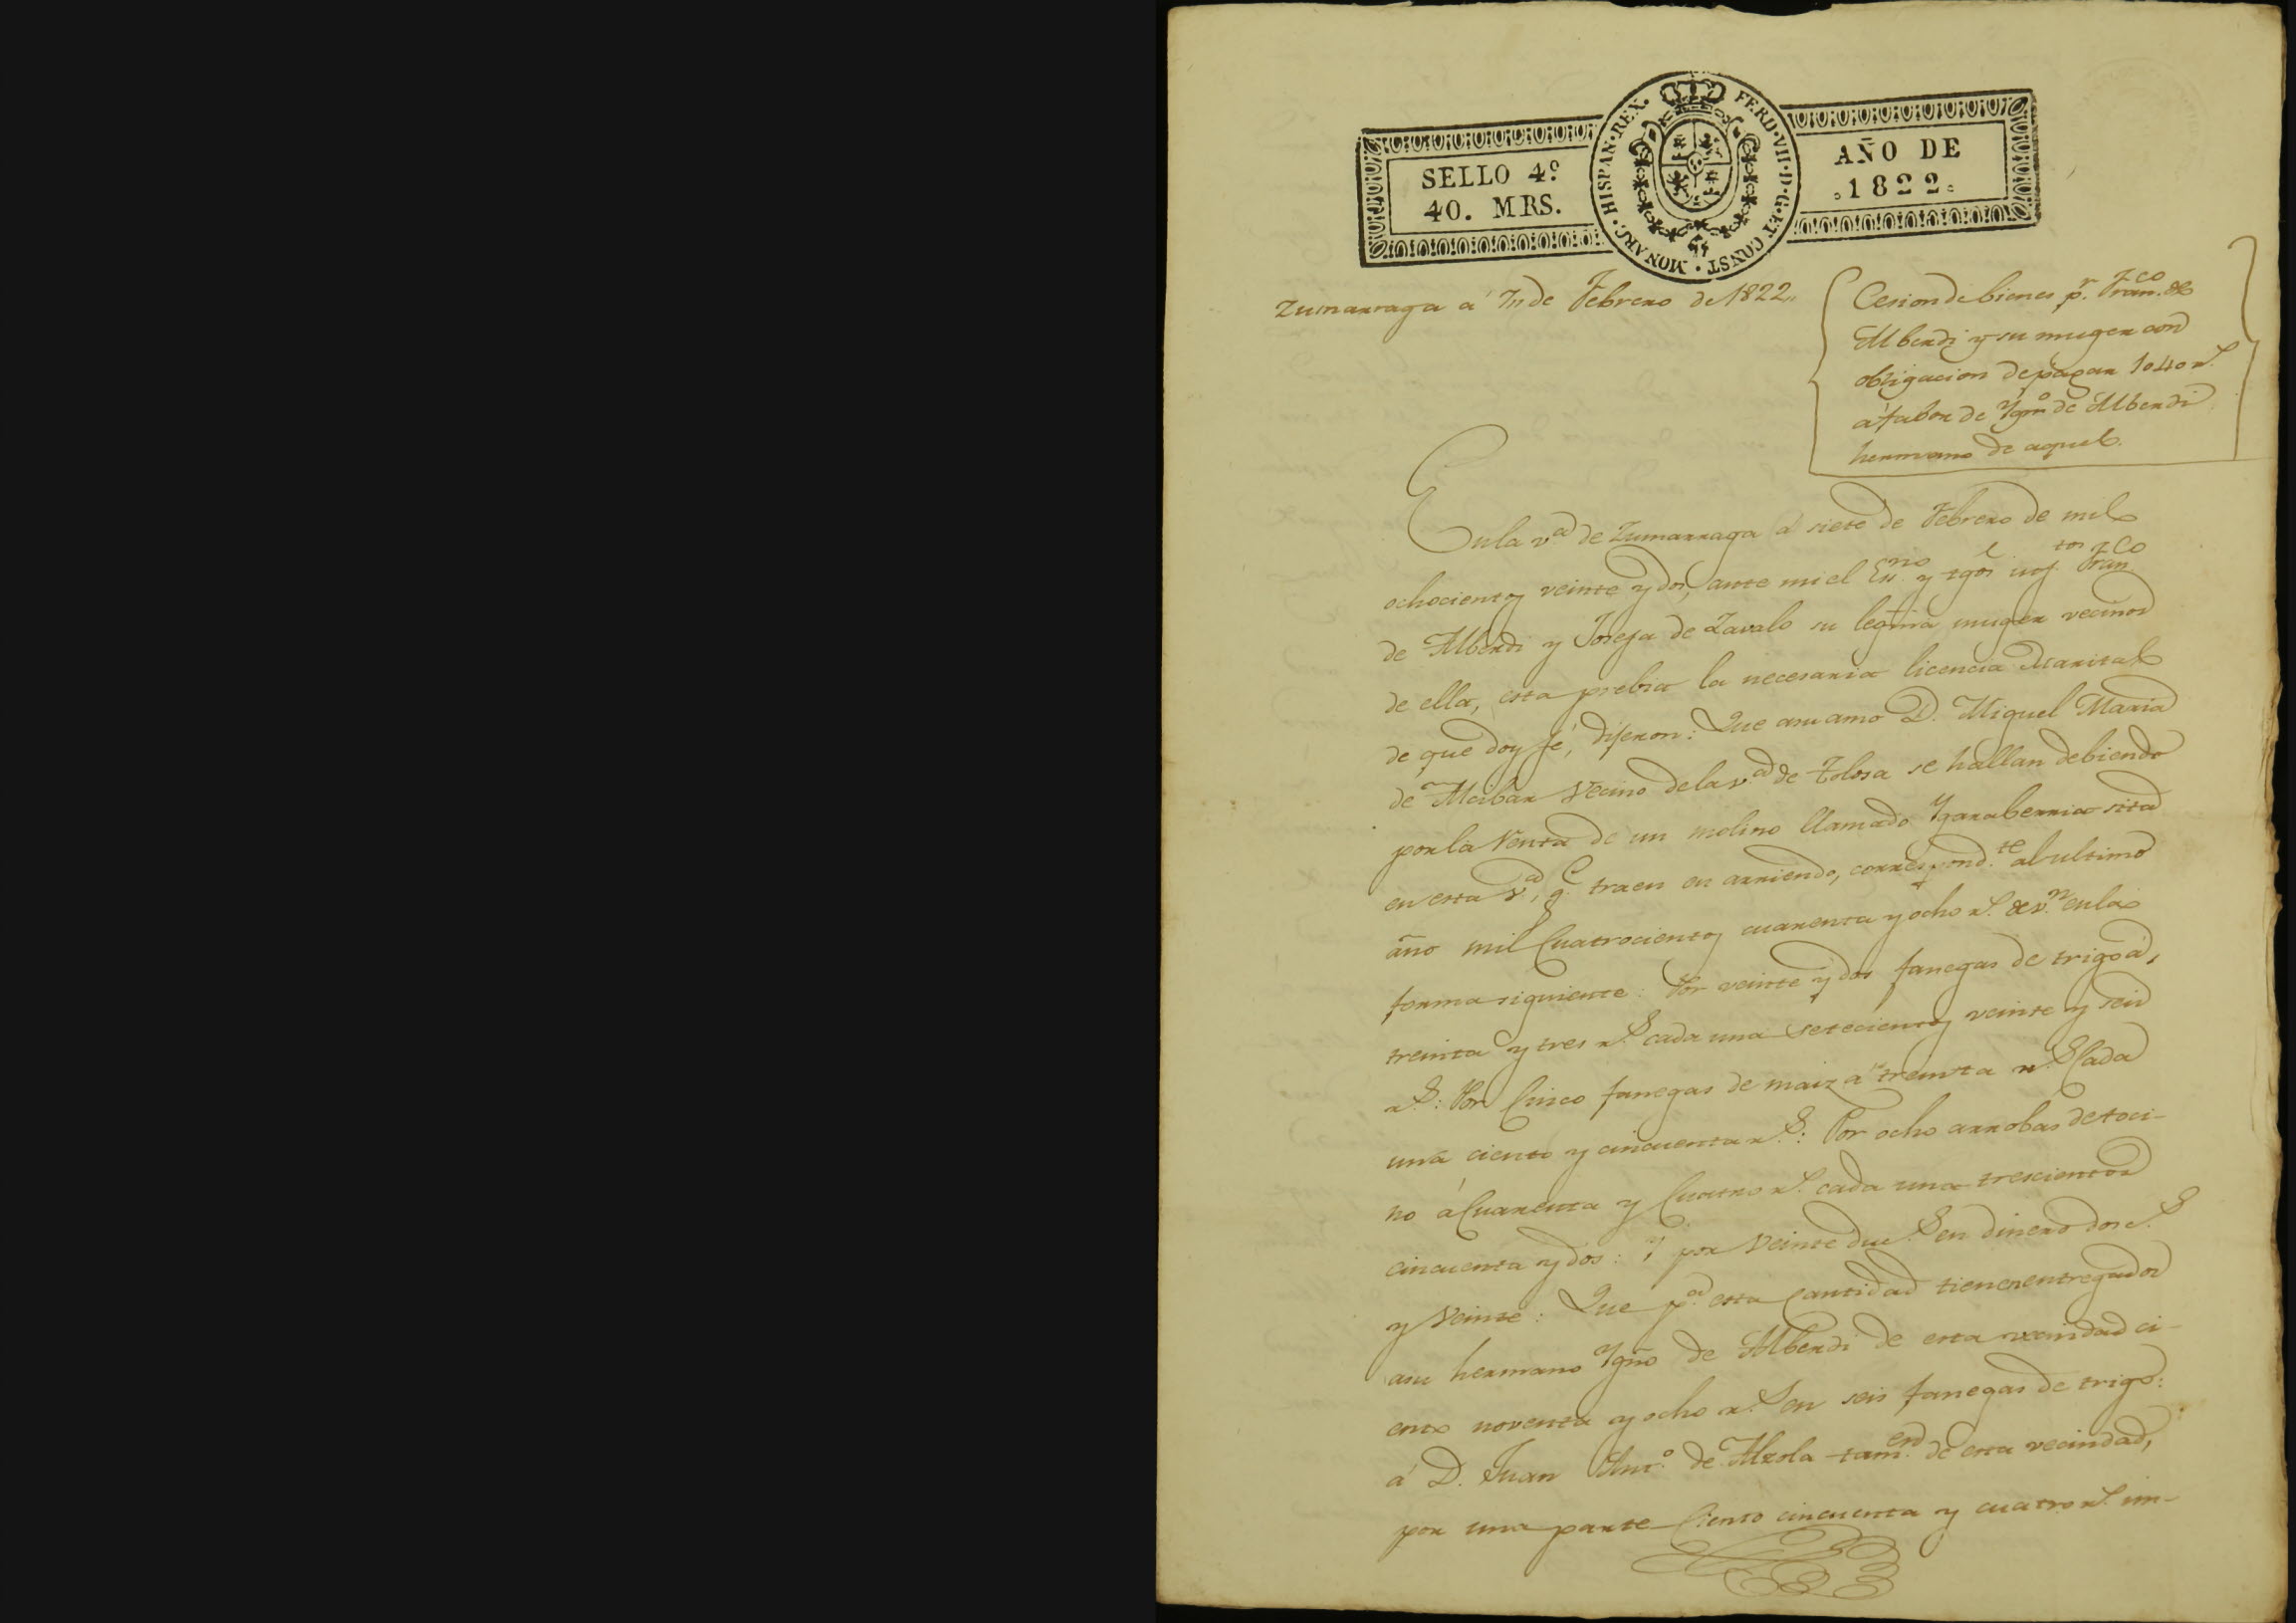 SELLO 4º
40. MRS.
HISPAN·REX. FERD·VII·D·G·ET CONST·MONARC·
AÑO DE
1822
Zumarraga á 7,, de Febrero de 1822,,
Cesion de bienes pr. Franco. de
Alberdi y su muger con
obligacion de pagar 1040 rs.
á fabor de Ygno. de Alberdi
hermano de aquel.
En la va. de Zumarraga á siete de Febrero de mil
ochocientos veinte y dos, ante mi el Esno. y tgos. Franco.
de Alberdi y Josefa de Zavalo su legma. muger vecinos
de ella, esta prebia la necesaria licencia Marital
de que doy fé, dijeron: Que a su amo D. Miguel Maria
de Alcibar Vecino de la va. de Tolosa se hallan debiendo
por la Renta de un molino llamado Ygaraberria sita
en esta va., qe. traen en arriendo, correspondte. al ultimo
año mil Cuatrocientos cuarenta y ocho rs. de vn. en la
forma siguiente: Por veinte y dos fanegas de trigo á,
treinta y tres rs. cada una setecientos veinte y seis
rs.: Por Cinco fanegas de maiz á treinta rs. Cada
una ciento y cincuenta rs.: Por ocho arrobas de toci-
no á Cuarenta y Cuatro rs. cada una trescientos
cincuenta y dos: Y por Veinte duc.s en dinero dosc.s
y Veinte: Que pa. esta Cantidad tienen entregados
a su hermano Ygno. de Alberdi de esta vecindad ci-
ento noventa y ocho rs. en seis fanegas de trigo:
á D. Juan Anto. de Alzola tamen. de esta vecindad,
por una parte Ciento cincuenta y cuatro rs. im-